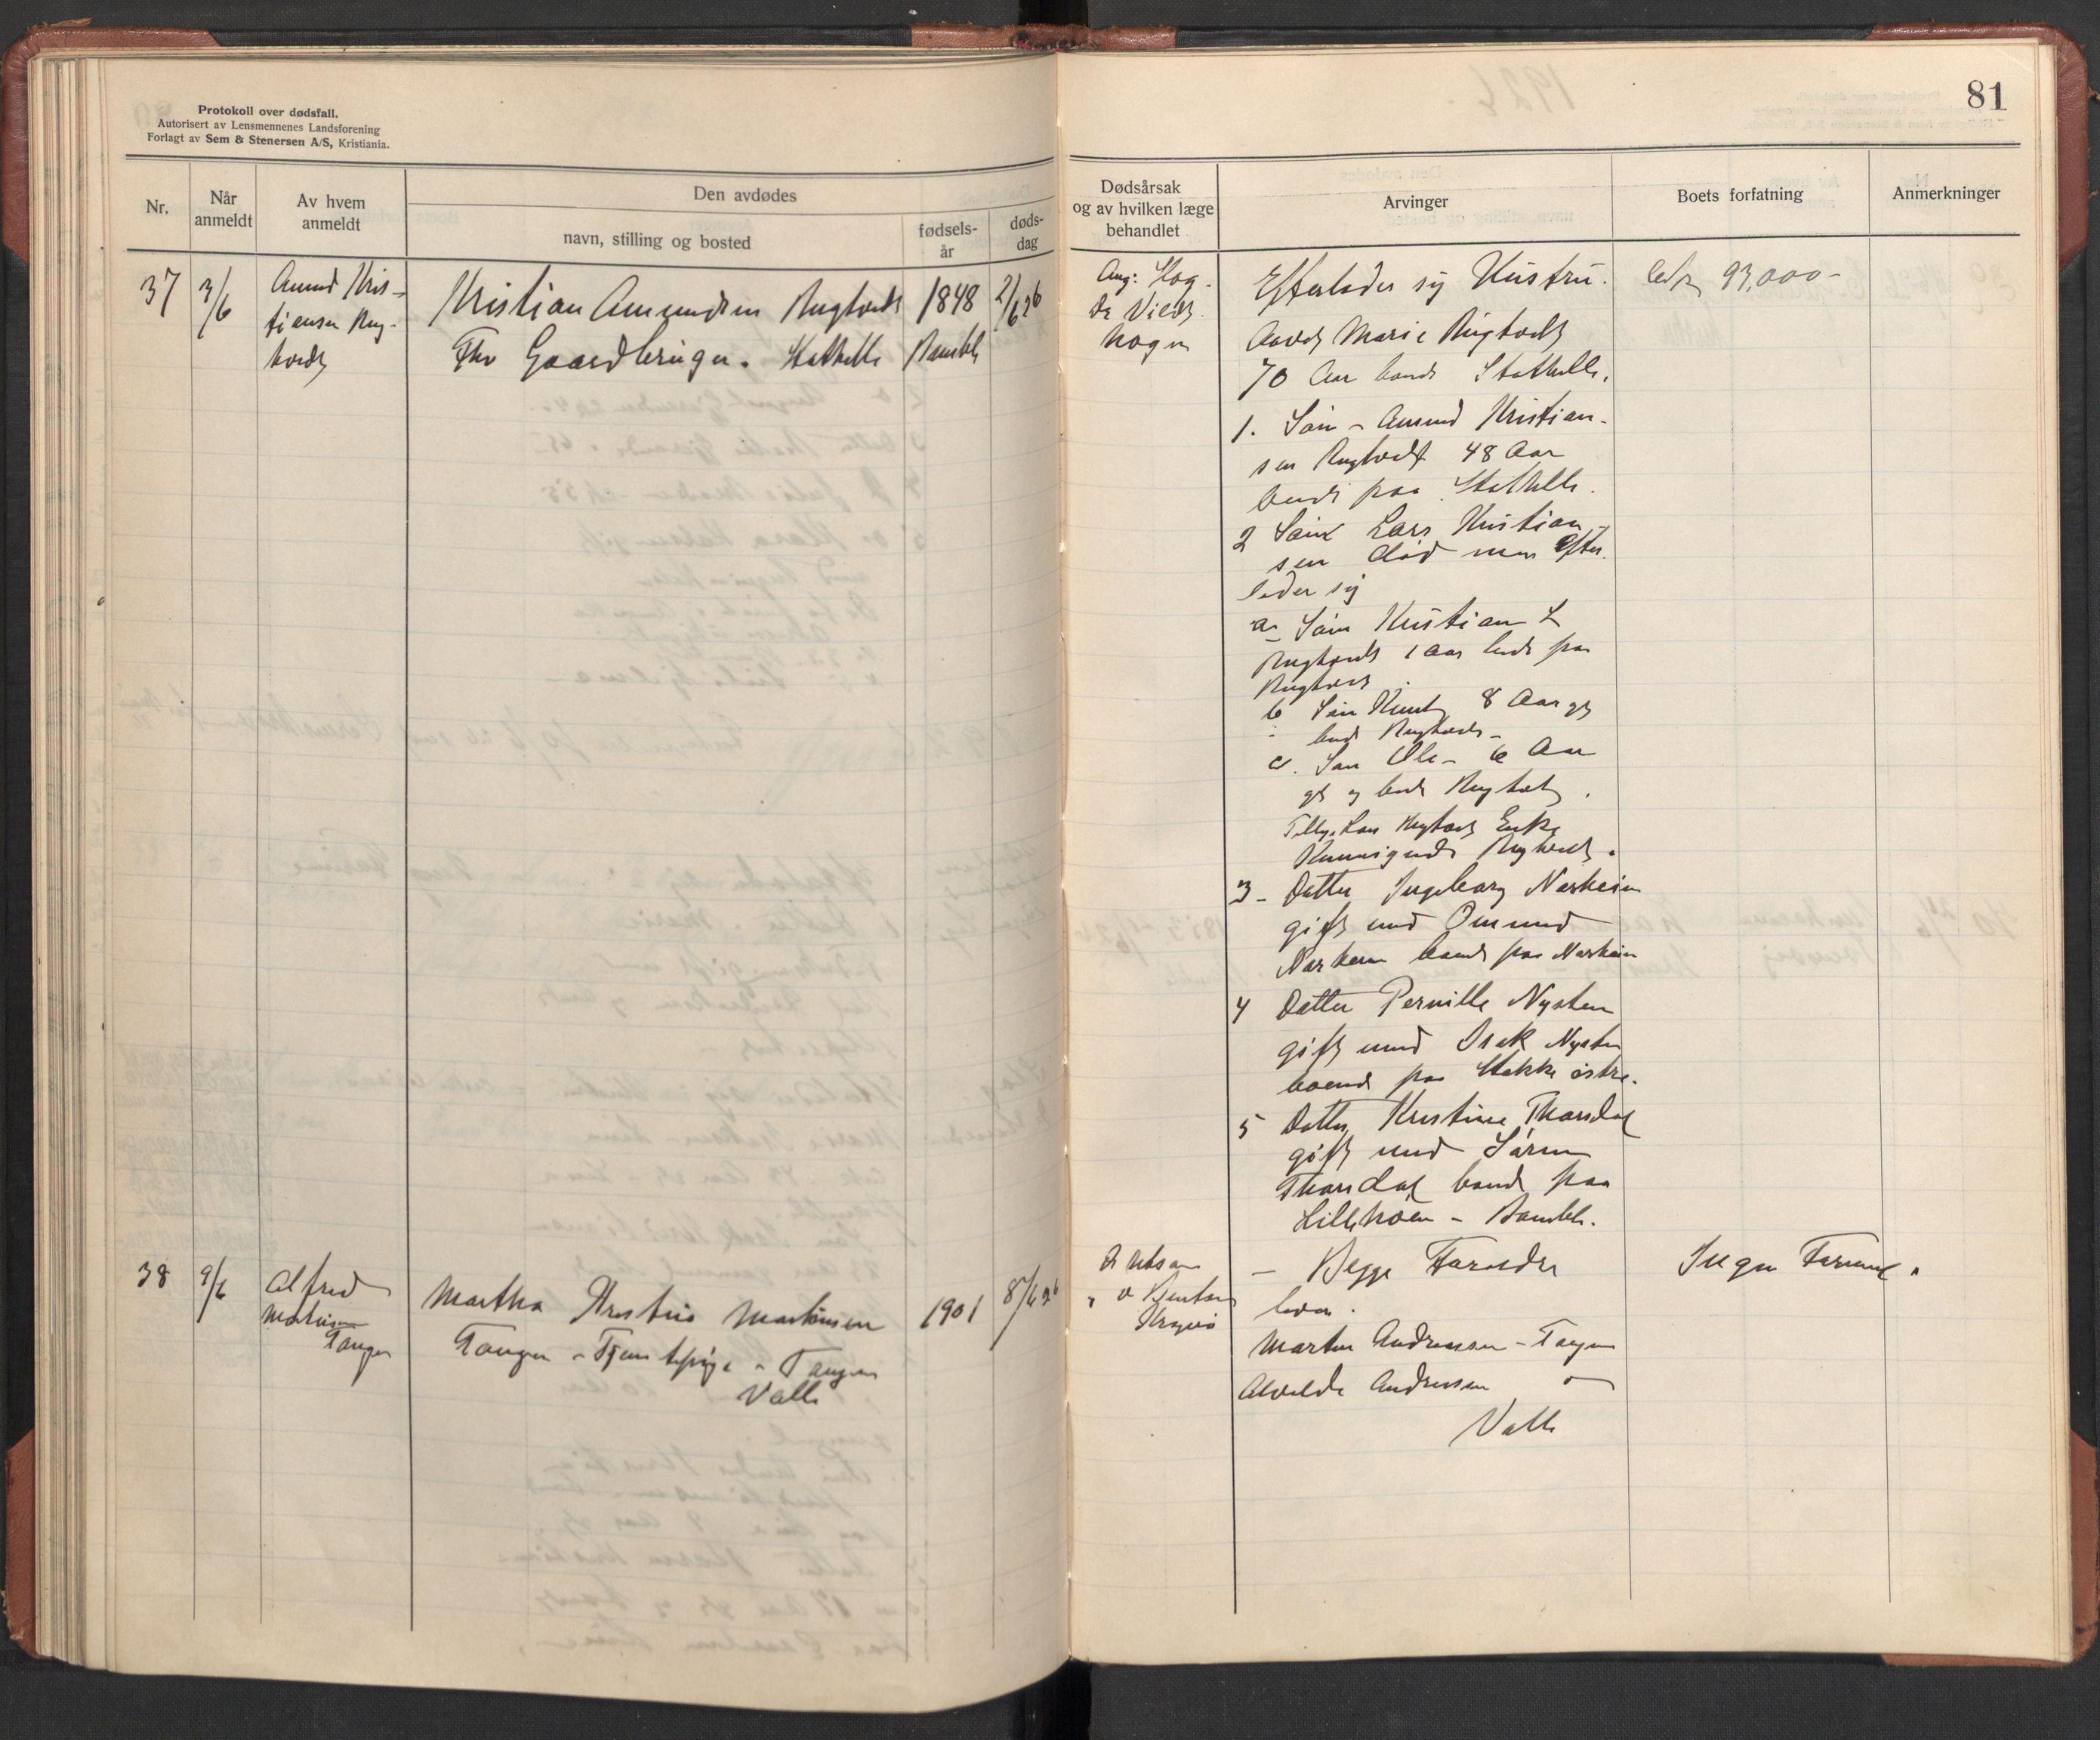 81
Protokoll over dødsfall.
Autorisert av Lensmennenes Landsforening
Forlagt av Sem & Stenersen A/S, Kristiania.
Nr.
Når anmeldt
Av hvem anmeldt
Den avdødes
navn, stilling og bosted
fødsels-
år
døds-
dag
Dødsårsak
og av hvilken læge
behandlet
Arvinger
Boets forfatning
Anmerkninger
37
3/6
Amund Kris-
tiansen Rug-
tvedt
Kristian Amundsen Rugtvedt
Fhv Gaardbruger. Stathelle Bamble
1848
2/6 26
Dr
Efterlader sig Hustru.
Marie Rugtvedt
70 Aar boende Stathelle.
1. Søn - Amund Kristian-
sen Rugtvedt 48 Aar
boende paa Stathelle.
2 Søn Lars Kristian-
sen død men efter-
lader sig
a. Søn Kristian L
Rugtvedt Aar boende paa
Rugtvedt
b Søn Knut 8 Aar gl
boende Rugtvedt -
c. Søn Ole - 6 Aar
gl og boende Rugtvedt.
Lars Rugtvedt Enke
Rugtvedt.
3 - Datter Ingeborg Narheim
gift med Omund
Narheim boende paa Narheim
4 Datter Pernille Nysten
gift med Isak Nysten
boende paa Stokke østre.
5 Datter Kristine Thorsdal
gift med Søren
Thorsdal boende paa
- Bamble.
93,000 -
38
9/6
Alfred
Martinsen
Tangen
Martha Martinsen
Tangen - Tjenestepige - Tangen
Valle
1901
8/6 26
Dr
Kragerø
- Begge Forældre
lever.
Martin Andreassen - Tangen
Andreassen
Valle
Ingen Formue.